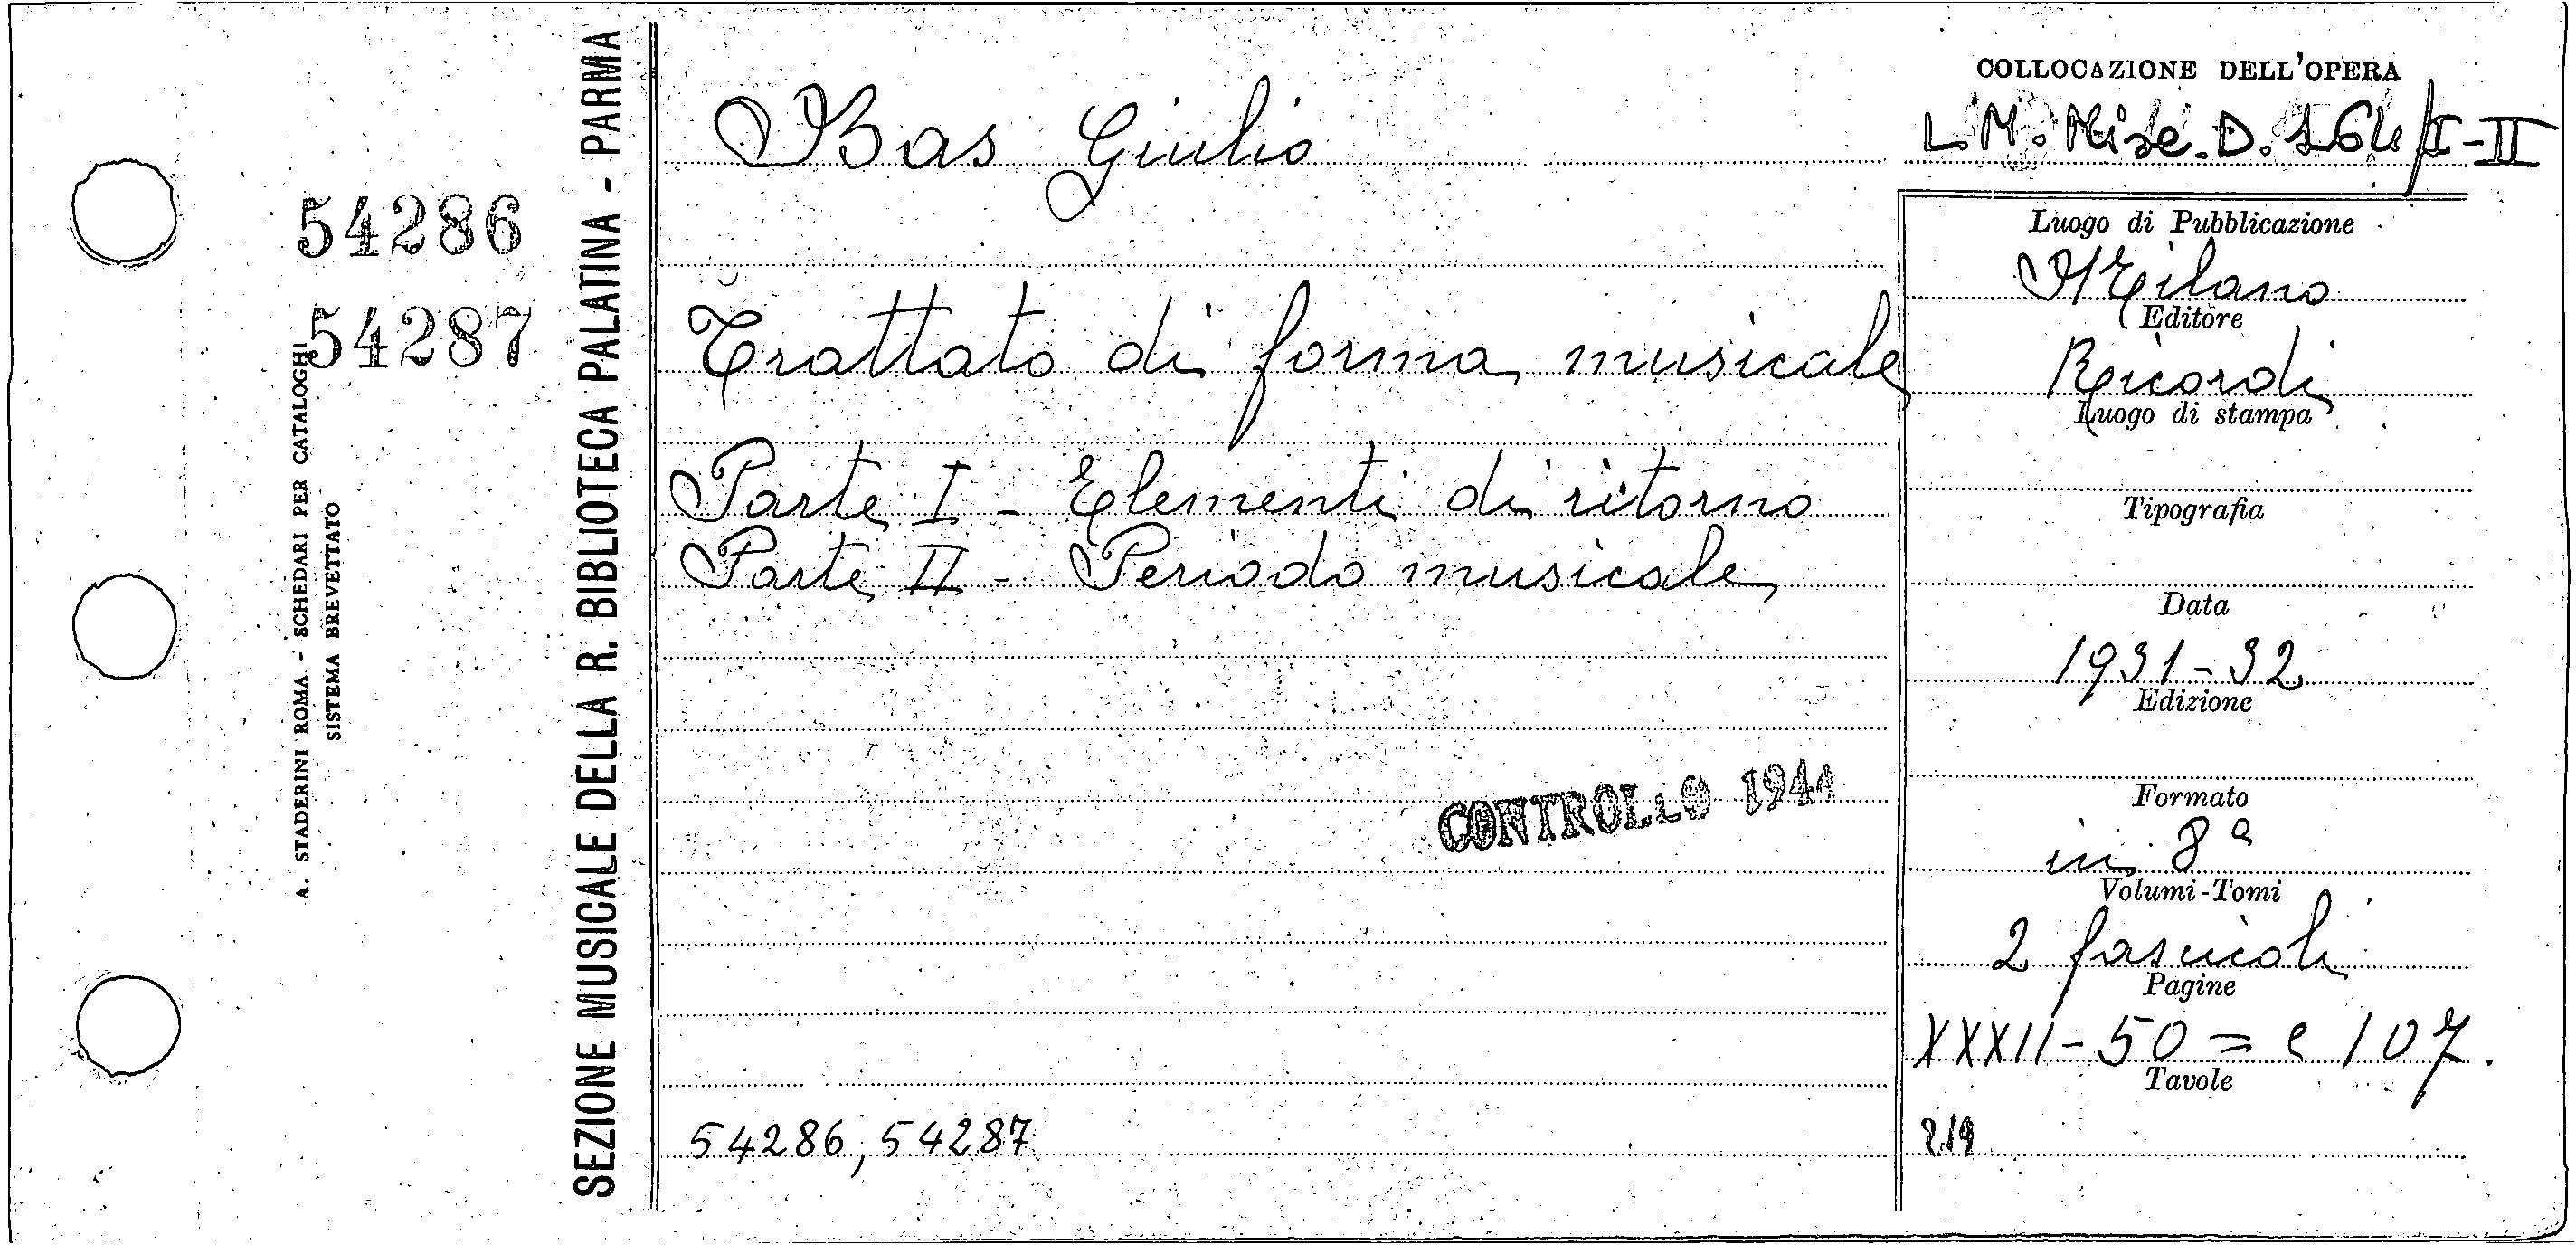 54286
54287
A. STADERINI ROMA - SCHEDARI PER CATALOGHI
SISTEMA BREVETTATO
SEZIONE MUSICALE DELLA R. BIBLIOTECA PALATINA - PARMA
Bas Giulio
Trattato di forma musicale
Parte I - Elementi di ritorno
Parte II - Periodo musicale
CONTROLLO 1944
54286, 54287
COLLOCAZIONE DELL'OPERA
L.M. Misc. D. 164/I-II
Luogo di Pubblicazione
Milano
Editore
Ricordi
Luogo di stampa
Tipografia
Data
1931-32
Edizione
Formato
in 8ª
Volumi-Tomi
2 fascicoli
Pagine
XXXII-50 = e 107.
Tavole
219